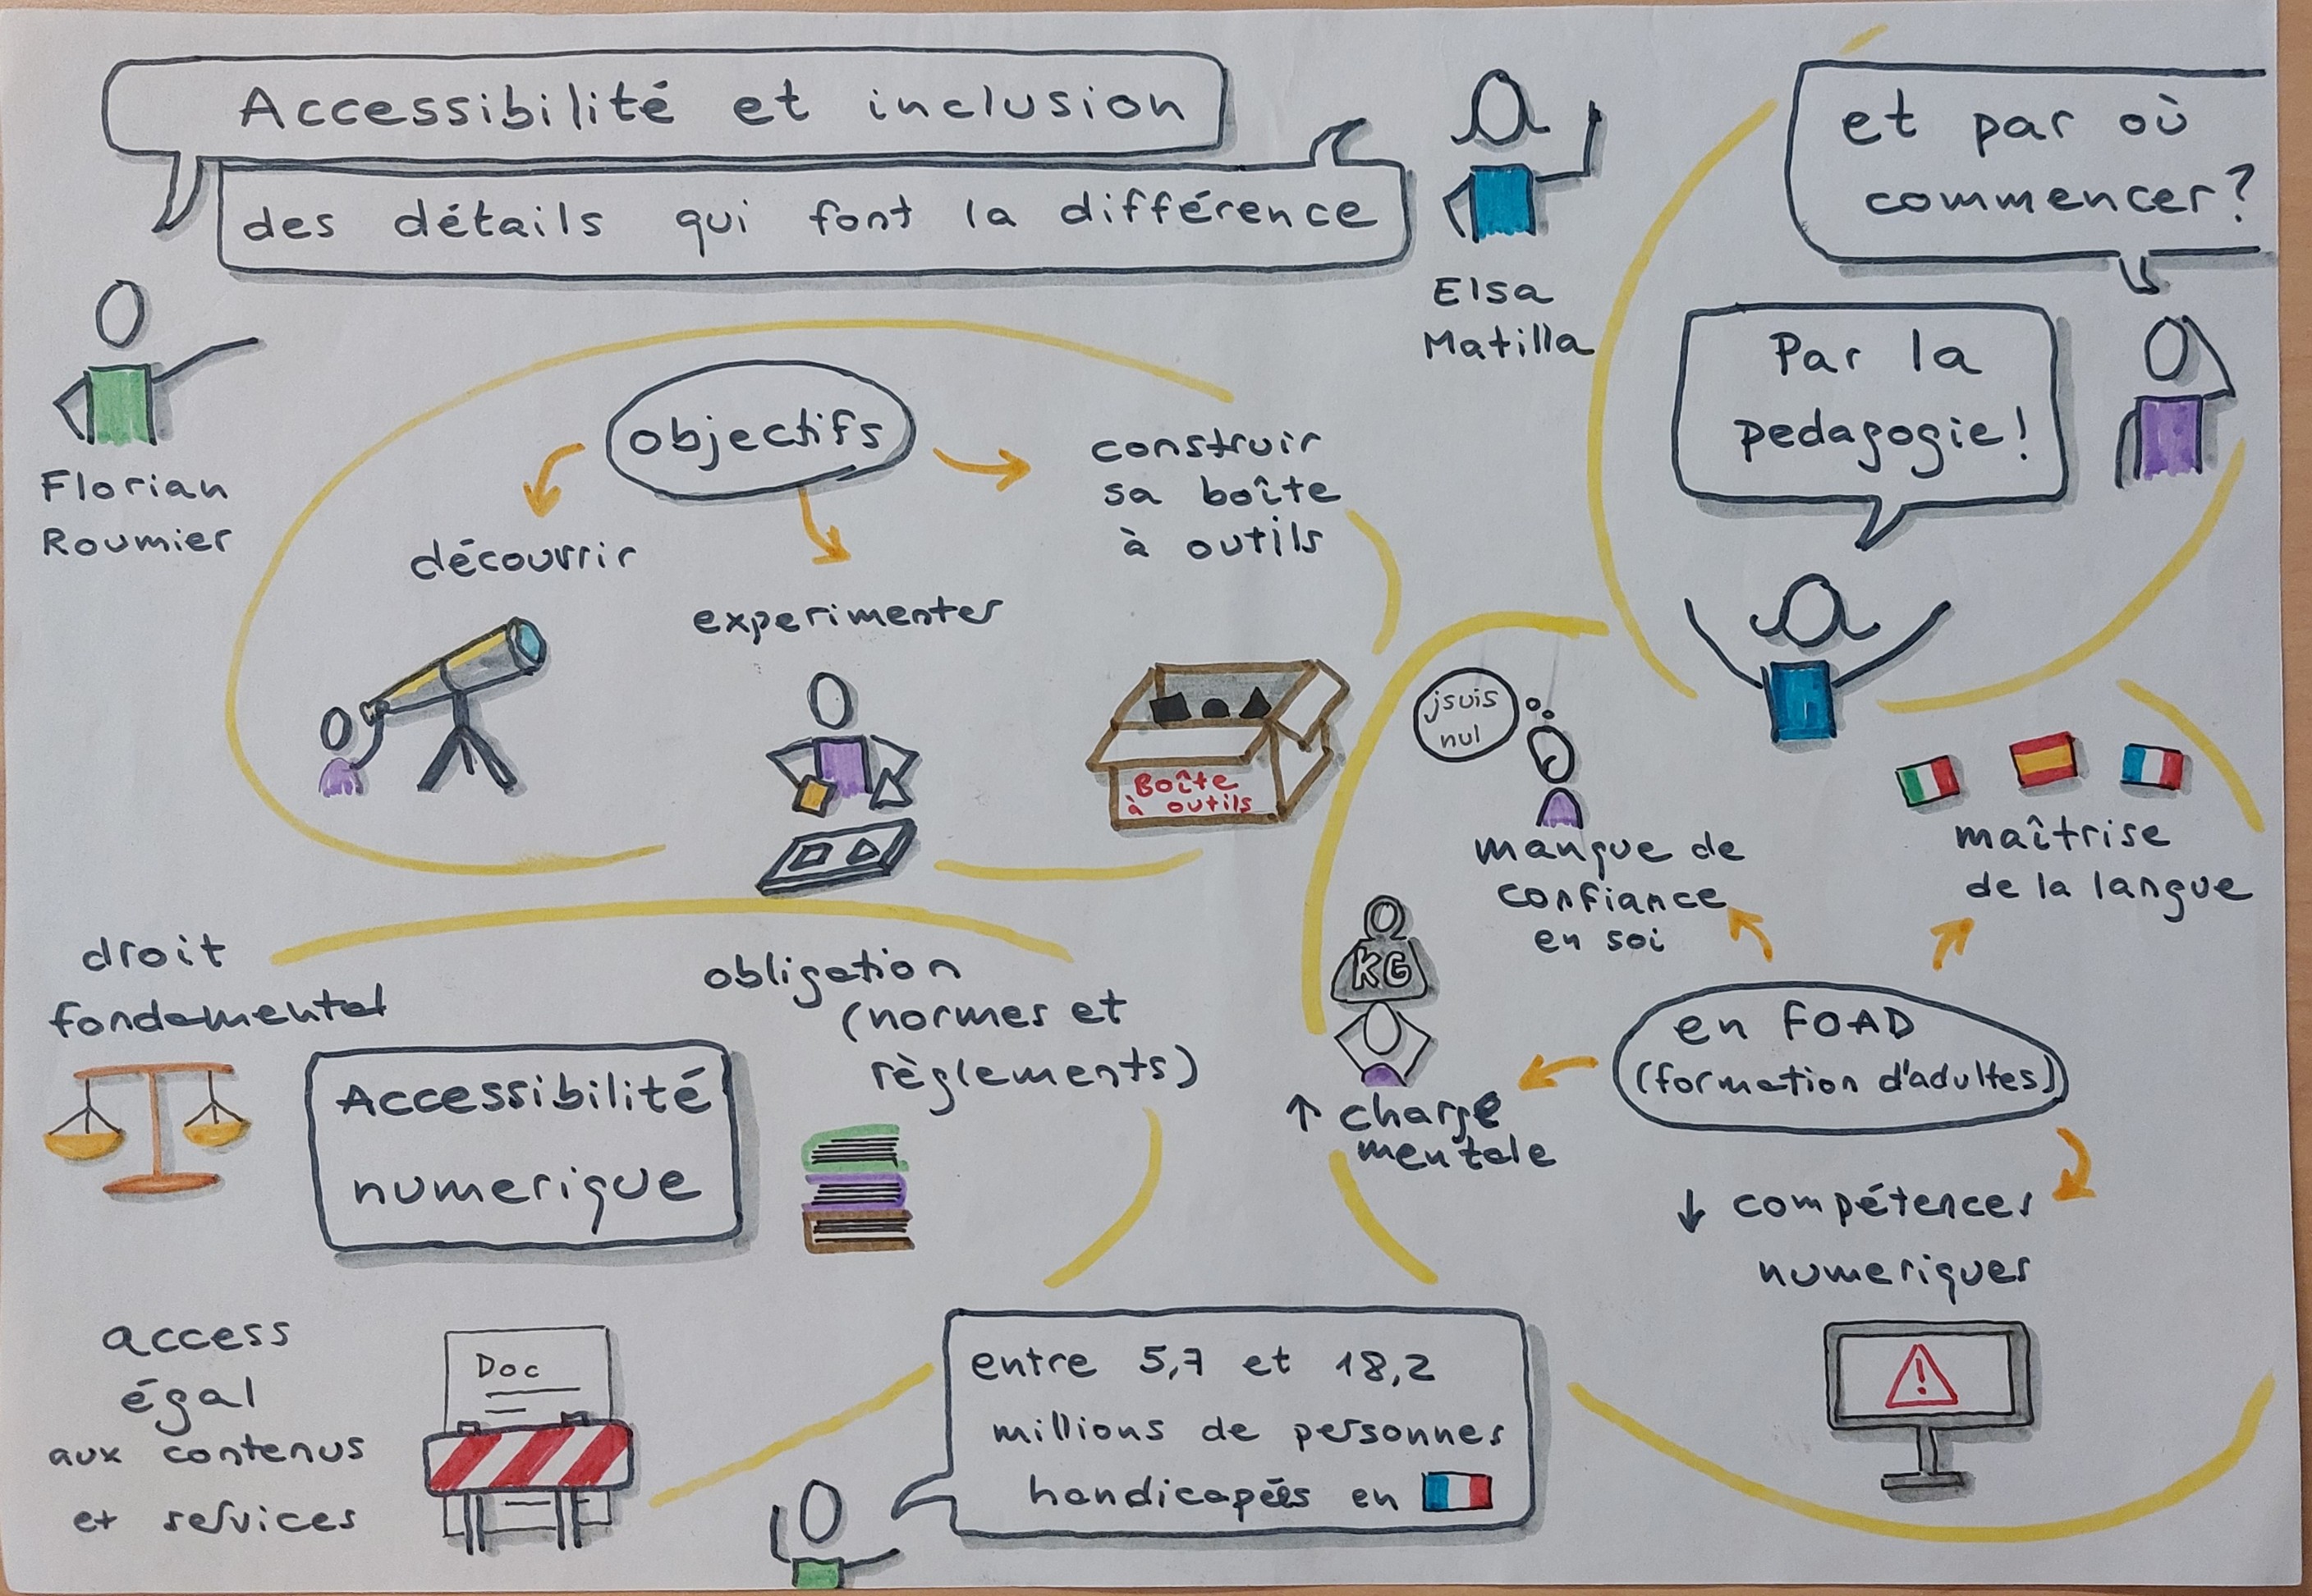 Accessibilité et inclusion
des détails qui font la différence
Florian
Roumier
Elsa
Matilla
et par où
commencer?
Par la
pedagogie!
objectifs
découvrir
experimenter
construir
sa boîte
à outils
Boîte
à outils
jsuis
nul
manque de
confiance
en soi
maîtrise
de la langue
KG
↑ charge
mentale
en FOAD
(formation d'adultes)
↓ compétences
numeriques
!
droit
fondamental
obligation
(normes et
règlements)
Accessibilité
numerique
access
égal
aux contenus
et services
Doc
entre 5,7 et 18,2
millions de personnes
handicapées en